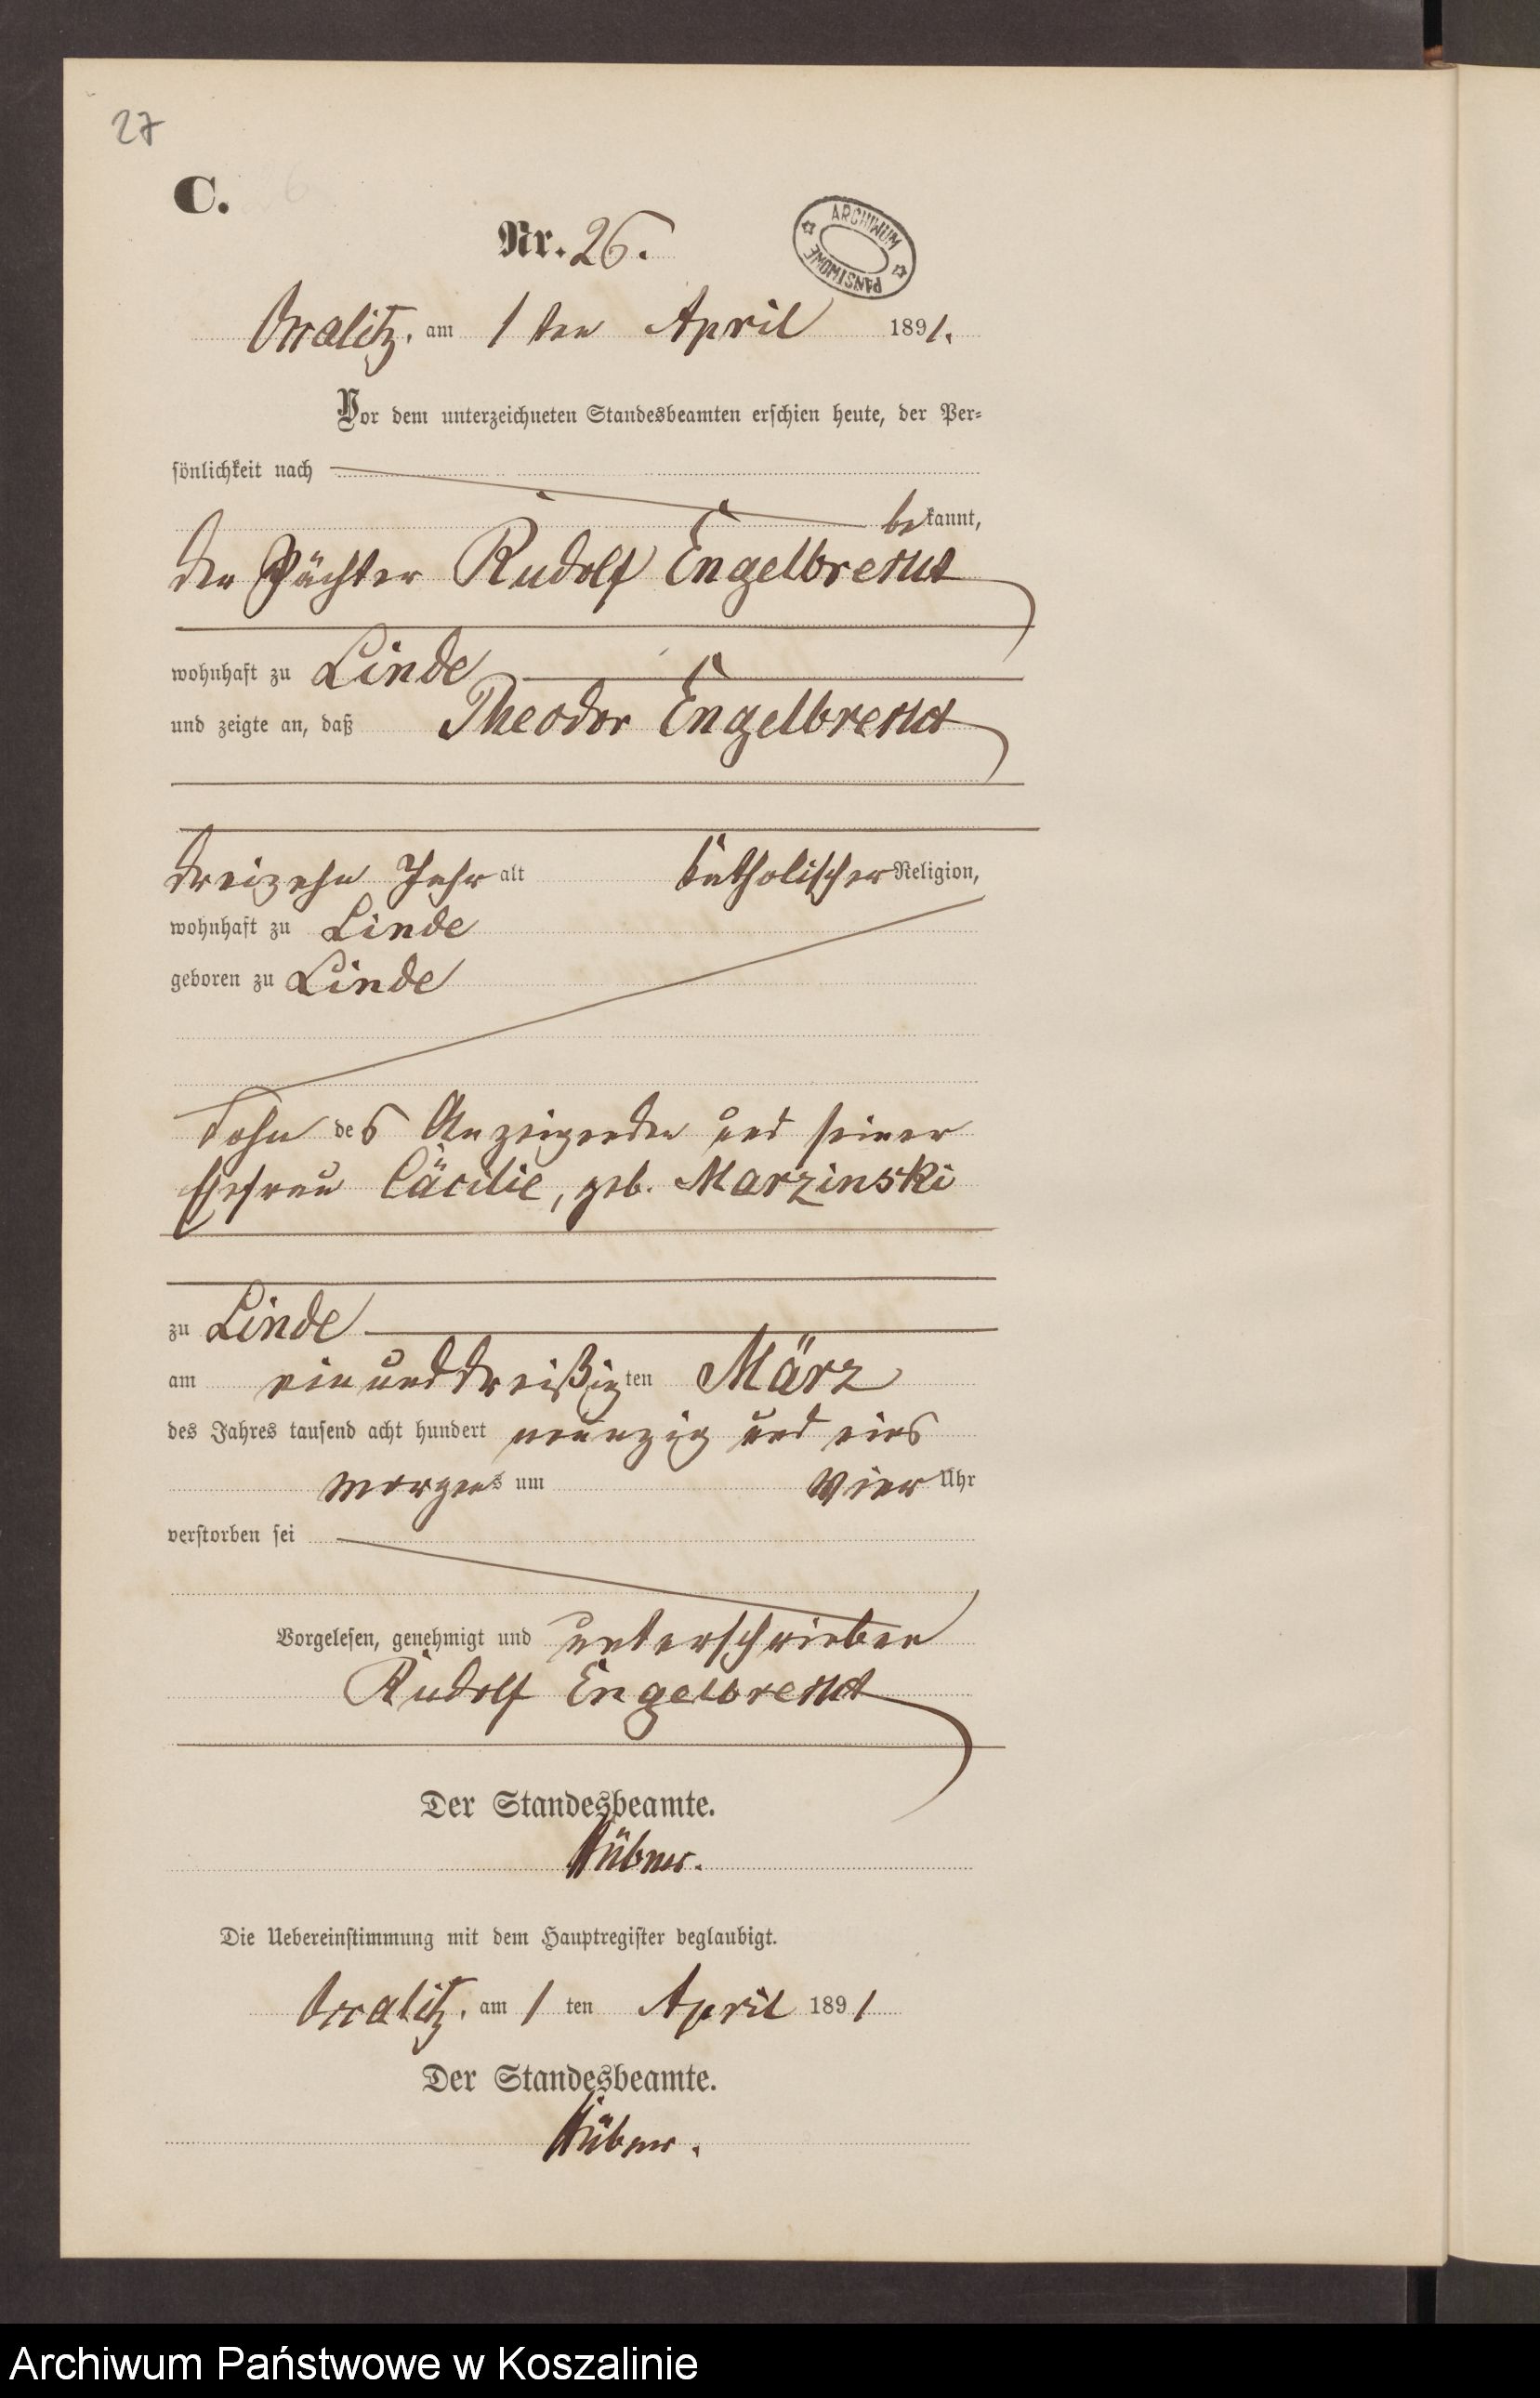 27
C.
Nr. 26.
ARCHIWUM PAŃSTWOWE
am 1 ten April 1891.
Vor dem unterzeichneten Standesbeamten erschien heute, der Per-
sönlichkeit nach
bekannt,
der Pächter Rudolf Engelbrecht
wohnhaft zu Linde
und zeigte an, daß Theodor Engelbrecht
dreizehn Jahr alt katholischer Religion,
wohnhaft zu Linde
geboren zu Linde
Sohn des Anzeigenden und seiner
Ehefrau Cäcilie, geb. Marzinski
zu Linde
am einunddreißigten März
des Jahres tausend acht hundert neunzig und eins
Morgens um vier Uhr
verstorben sei
Vorgelesen, genehmigt und unterschrieben
Rudolf Engelbrecht
Der Standesbeamte.
Hübner.
Die Uebereinstimmung mit dem Hauptregister beglaubigt.
am 1 ten April 1891
Der Standesbeamte.
Hübner.
Archiwum Państwowe w Koszalinie